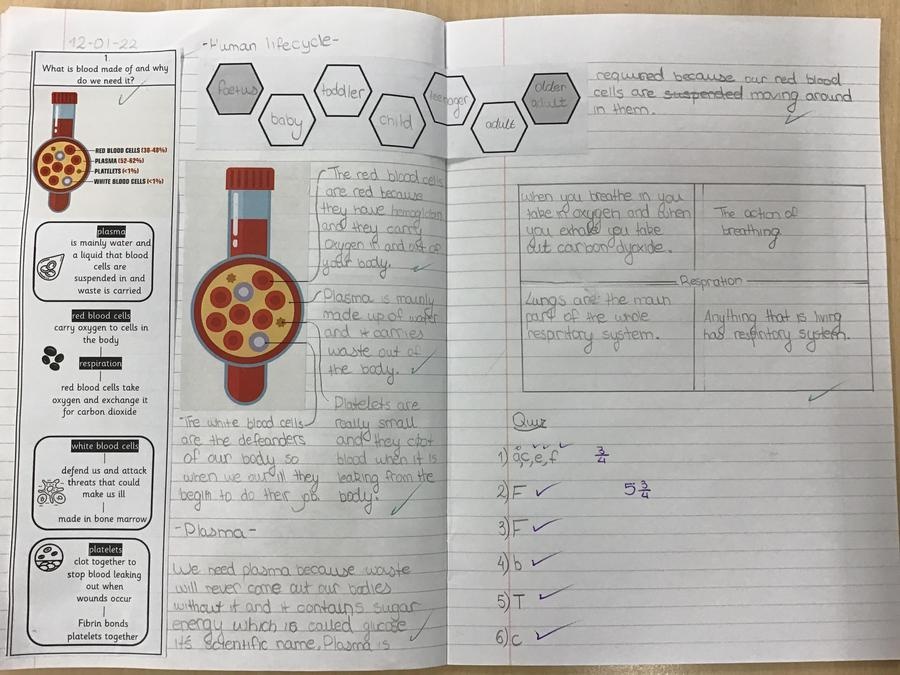 12-01-22
1.
What is blood made of and why
do we need it?
RED BLOOD CELLS (38-48%)
PLASMA (52-62%)
PLATELETS (<1%)
WHITE BLOOD CELLS (<1%)
plasma
is mainly water and
a liquid that blood
cells are
suspended in and
waste is carried
red blood cells
carry oxygen to cells in
the body
respiration
red blood cells take
oxygen and exchange it
for carbon dioxide
white blood cells
defend us and attack
threats that could
make us ill
made in bone marrow
platelets
clot together to
stop blood leaking
out when
wounds occur
Fibrin bonds
platelets together
-Human lifecycle-
foetus
baby
toddler
child
teenager
adult
older
adult
The red blood cells
are red because
they have
and they carry
Oxygen in and out of
your body.
Plasma is mainly
made up of water
and it carries
waste out of
the body.
Platelets are
really small
and they clot
blood when it is
leaking from the
body.
-The white blood cells
are the defeanders
of our body so
when we our ill they
begin to do their job.
-Plasma-
We need plasma because waste
will never come out our bodies
without it and it contains sugar
energy which is called glucose
it's scientific name. Plasma is
required because our red blood
cells are suspended moving around
in them.
when you breathe in you
take in oxygen and when
you exhale you take
out carbon dyoxide.
The action of
breathing
Respration
Lungs are the main
part of the whole
respiritory system.
Anything that is living
has respiritory system.
Quiz
1) a,c,e,f 3/4
2) F 5 3/4
3) F
4) b
5) T
6) c